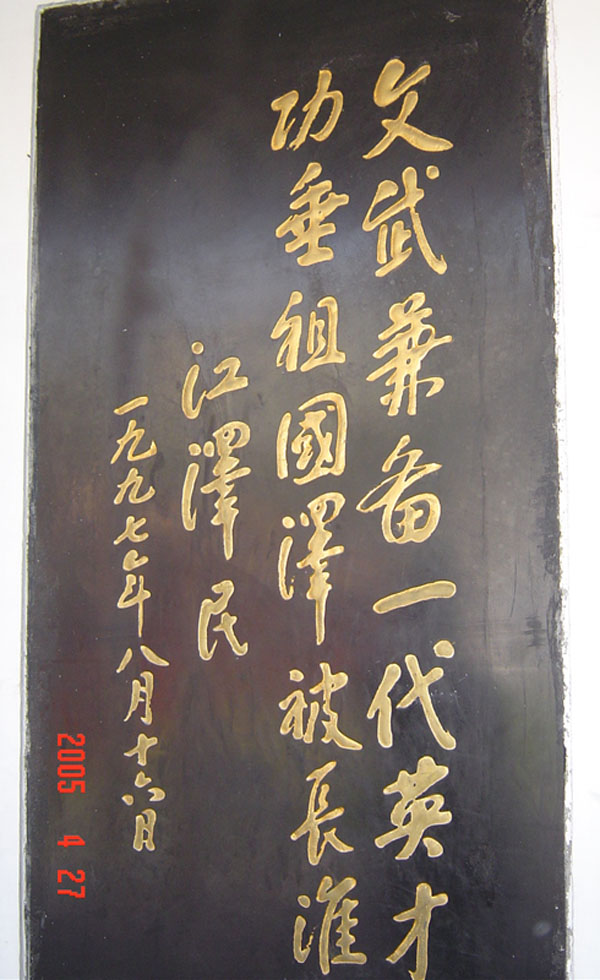 文武兼备一代英才
功垂祖國澤被長淮
江澤民
一九九七年八月十六日
2005 4 27